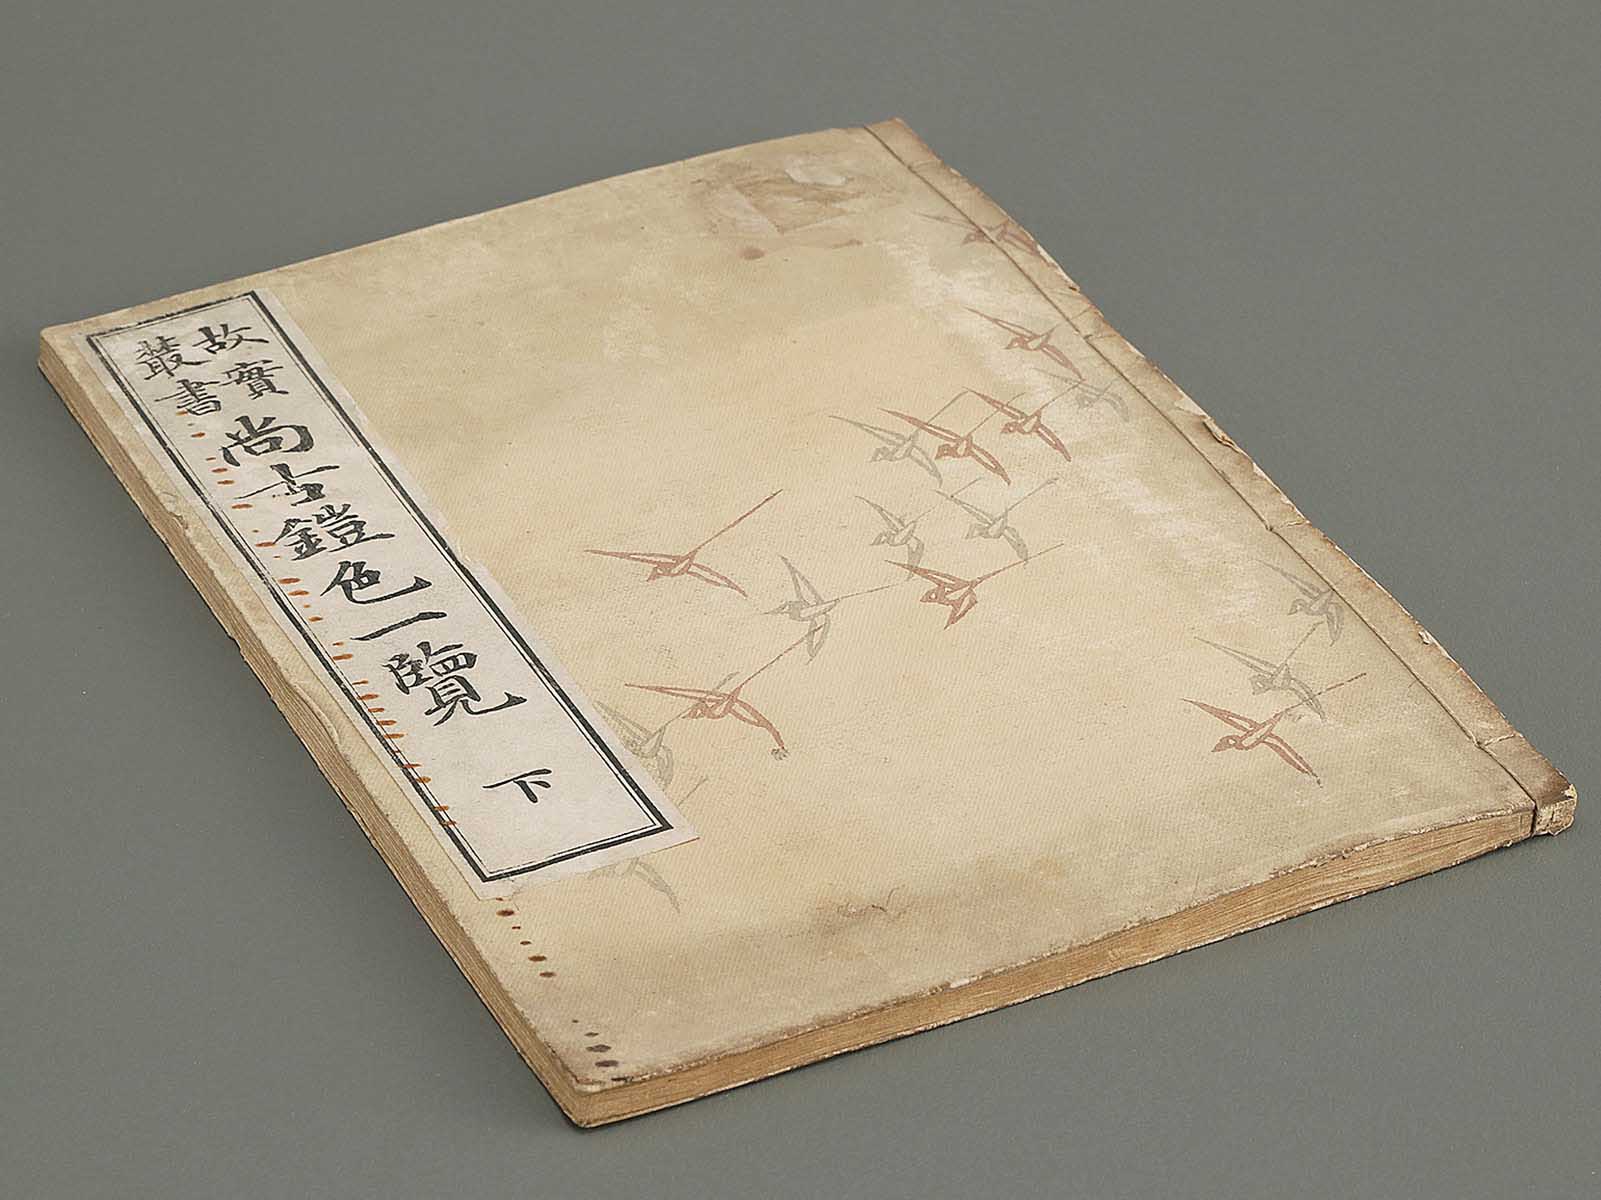 故實
叢書
尚古鎧色一覽 下